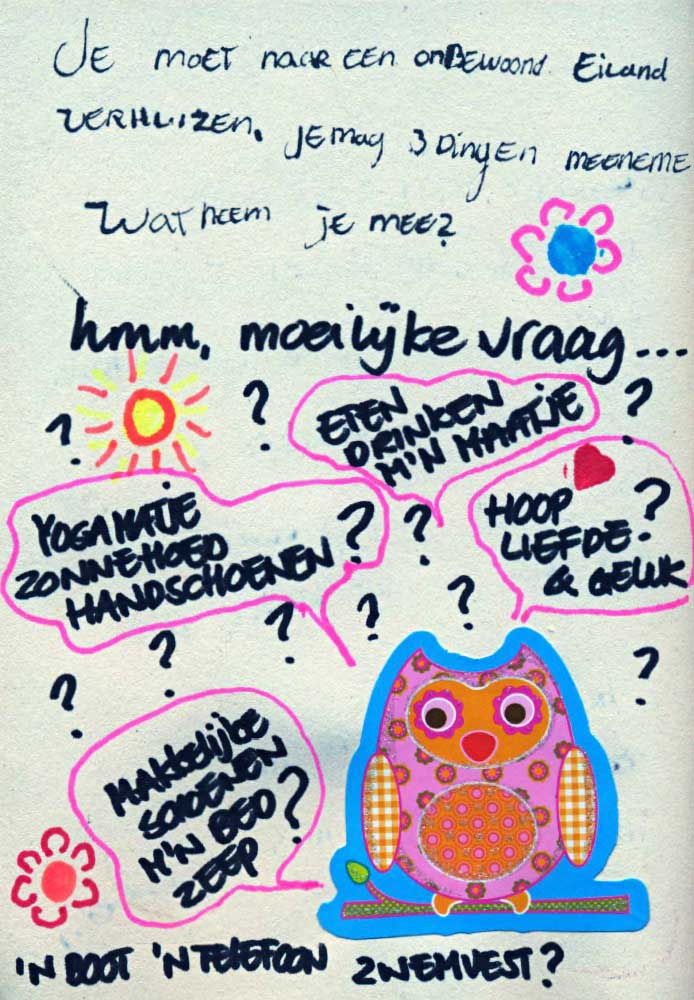 JE MOET naar EEN onBEwoond Eiland
VERHUIZEN. JE mag 3 DingEn MEENEME
WAT NEEM JE MEE?
hmm, moeilijke vraag...
ETEN
DRINKEN
M'N MAATJE
YOGAMATJE
ZONNEHOED
HANDSCHOENEN?
HOOP
LIEFDE-
& GELUK ?
? ? ? ? ? ? ? ? ? ?
MAKKELIJKE
SCHOENEN
M'N BED
ZEEP ?
'N BOOT 'N TELEFOON ZWEMVEST?